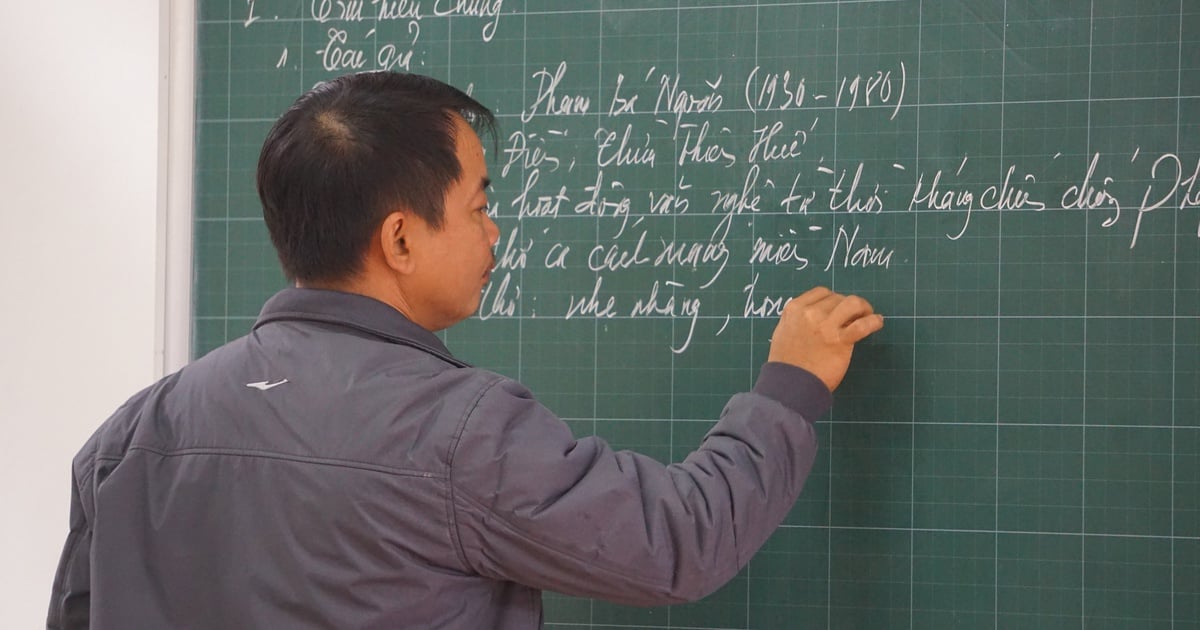 I. Tìm hiểu chung
1. Tác giả:
Phạm Bá Ngoãn (1930-1980)
Điền, Thừa Thiên Huế
hoạt động văn nghệ từ thời kháng chiến chống
thơ ca cách mạng miền Nam
thơ: nhẹ nhàng, trong